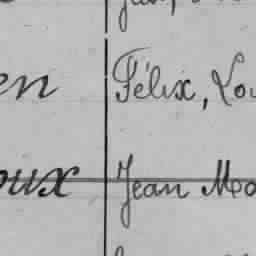 en Félix, Lou
oux Jean Ma